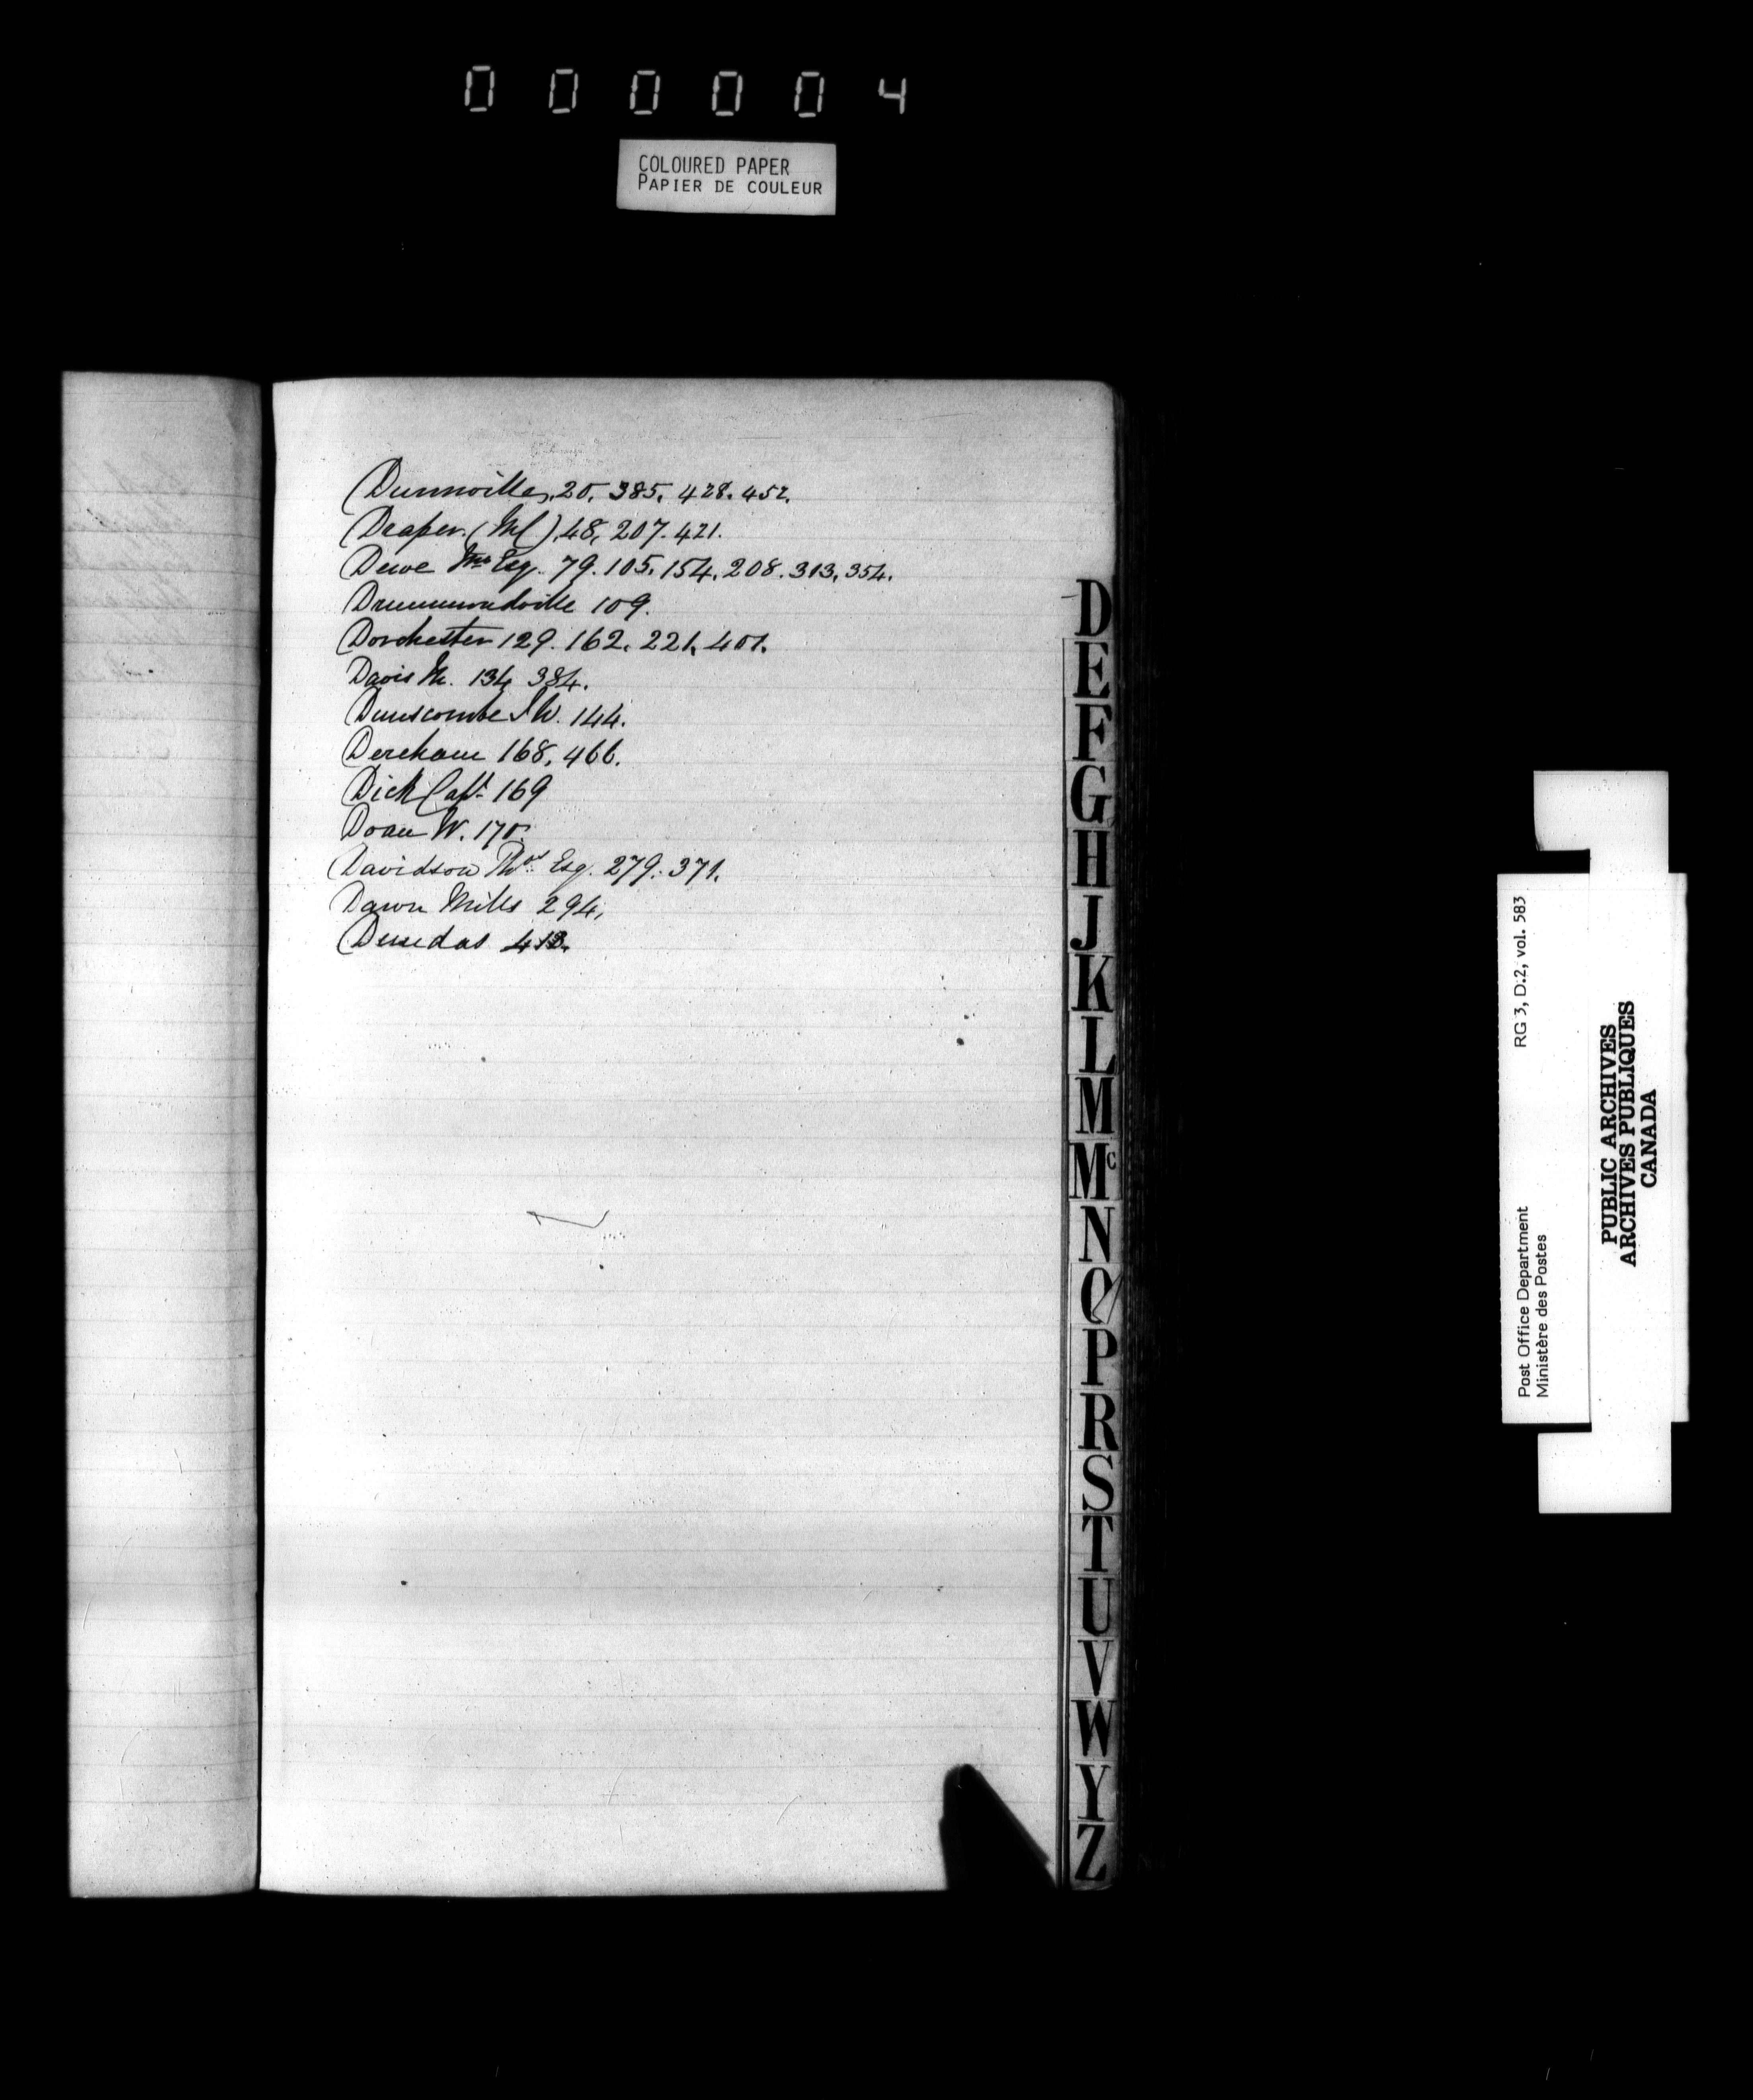 000004
COLOURED PAPER
PAPIER DE COULEUR
Dunnville, 20, 385, 428. 452.
Draper. (Wm) 48, 207. 421.
Dewe Jno Esq. 79. 105. 154. 208. 313, 354.
Drummondville 109.
Dorchester 129. 162. 221. 401.
Davis 134 384.
Dunscombe J W. 144.
Dereham 168, 466.
Dick Capt. 169
Doan W. 170.
Davidson Thos Esq. 279. 371.
Dawn Mills 294,
Dundas 413.
D
E
F
G
H
J
K
L
M
Mc
N
O
P
R
S
T
U
V
W
Y
Z
Post Office Department RG 3, D.2, vol. 583
Ministère des Postes
PUBLIC ARCHIVES
ARCHIVES PUBLIQUES
CANADA